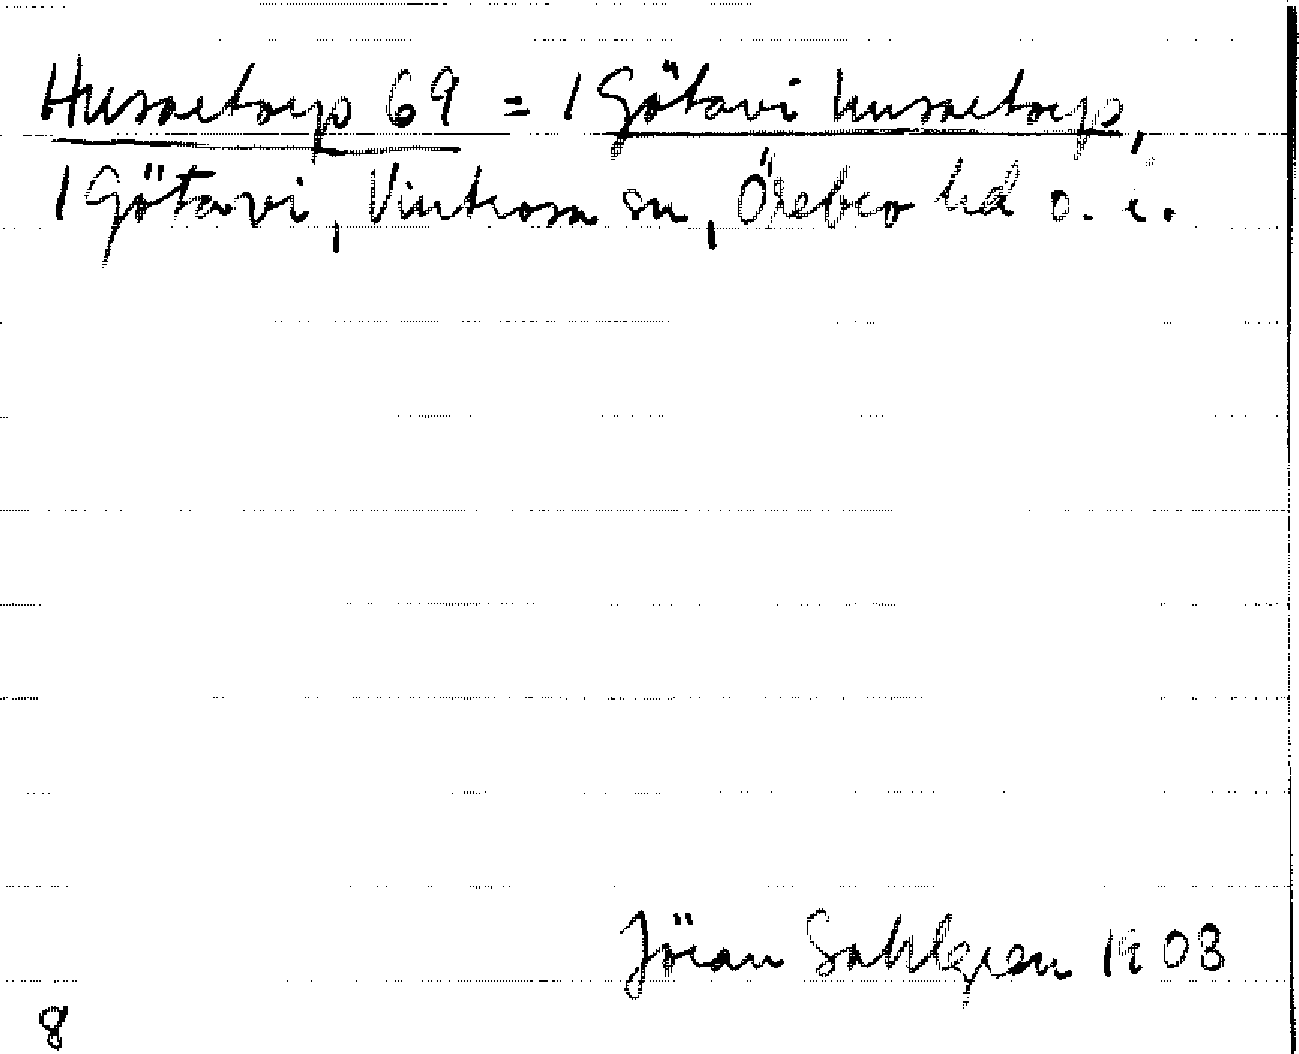 Husartorp 69 = 1 Götavi husartorp,
1 Götavi, Vintrosa sn, Örebro hd o. i.
Jöran Sahlgren 1903
8